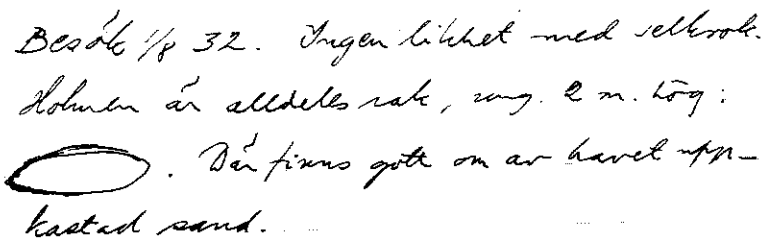 Besök 1/8 32. Ingen likhet med selkrok.
Holmen är alldeles rak, ung. 2 m. hög:
. Där finns gott om av havet upp-
kastad sand.